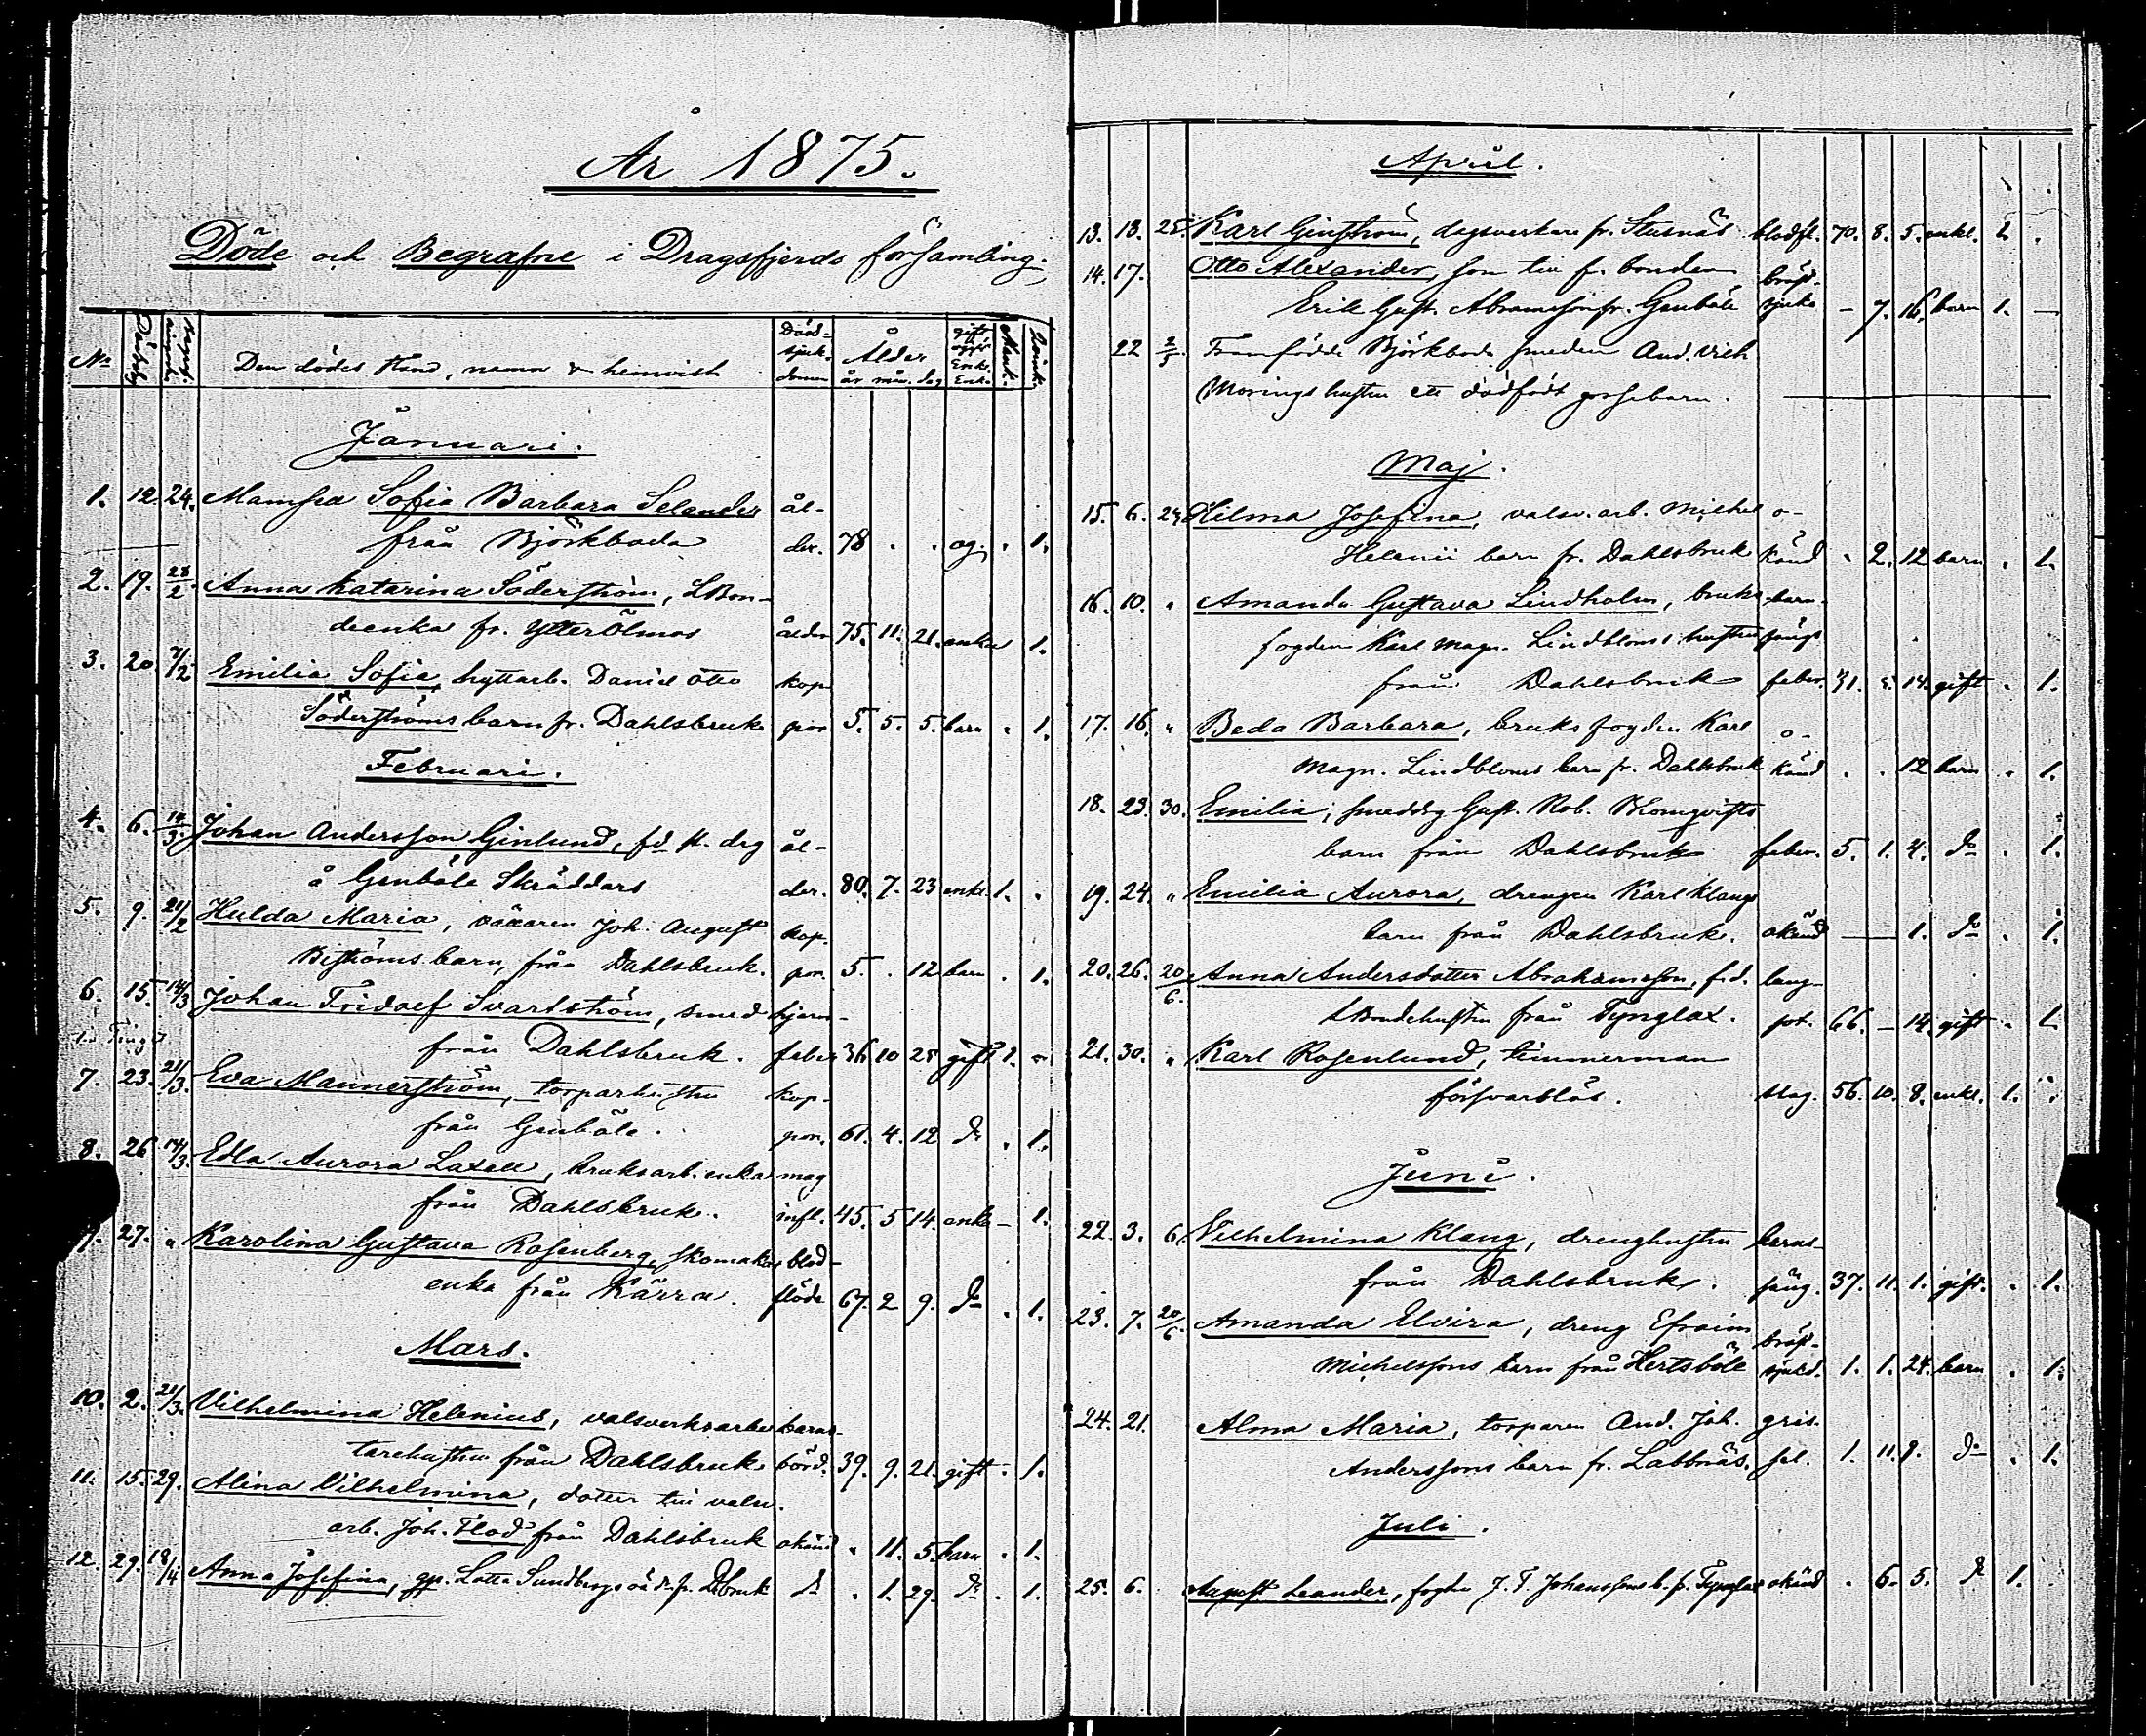 År 1875.
Döde och Begrafne i Dragsfjerds församling.
No Dödsdag Begrafningsdag Den dödes stånd, namn & hemvist Dödssjukdomen Ålder år mån. dag gift ogift Enkl. Enka Mank. Qvink.
Januari.
1. 12. 24. Mamsell Sofia Barbara Selander ål-
från Björkboda der. 78 . . og. . 1.
2. 19. 28/2. Anna Katarina Söderström, LBon-
deenka fr. YtterÖlmos ålder 75. 11. 21. enka 1.
3. 20. 7/2 Emilia Sofia, hyttarb. Daniel Otto kop-
Söderströms barn fr. Dahlsbruk por 5. 5. 5. barn . 1.
Februari.
4. 6. 14/3. Johan Andersson Ginlund, fd st. drg ål-
å Genböle Skräddars der. 80. 7. 23 enkl. 1. .
5. 9. 21/2 Hulda Maria, Joh. August kop.
Biströms barn, från Dahlsbruk. por. 5. . 12 barn . 1.
6. 15. 14/3 Johan Fridolf Svartström, smed hjern-
från Dahlsbruk. feber 36 10 25 gift 1. -
7. 23. 21/3. Eva Mannerström, torparhustru kop-
från Genböle. por. 61. 4. 12 do . 1.
8. 26 14/3. Edla Aurora Laxell, bruksarb. enka mag
från Dahlsbruk. infl. 45. 5 14. enka - 1.
9. 27. " Karolina Gustava Rosenberg, skomakar blod-
enka från Kärra. flöde 67. 2 9. do . 1.
Mars.
10. 2. 21/3. Vilhelmina Helenius, valsverksarbe barns-
tarehustru från Dahlsbruk börd. 39. 9. 21. gift . 1.
11. 15. 29. Alina Vilhelmina, dotter till valsv.
arb. Joh. Flod från Dahlsbruk okänd . 11. 5. barn . 1.
12. 29. 18/4 Anna Josefina, gp. Lotta Sundbergs oä. d. fr. Dbruk do . 1. 29. do . 1.
April.
13. 13. 25. Karl Ginström, dagsverkare fr. Stusnäs blodfl. 70. 8. 5. enkl. 1. .
14. 17. Otto Alexander, son till fr. bonden bröst-
Erik Gust. Abramsson fr. Genböle sjuka - 7. 16. barn 1. -
22 2/5. Framfödde Björkboda smeden And. Vilh
Morings hustru ett dödfödt gossebarn.
Maj.
15. 6. 24. Hilma Josefina, valsv. arb. Michel o-
Helenii barn fr. Dahlsbruk känd . 2. 12 barn . 1.
16. 10. " Amanda Gustava Lindholm, bruks- barn-
fogden Karl Magn. Lindbloms hustru sängs
från Dahlsbruk feber. 31. 14. gift . 1.
17. 16. " Beda Barbara, bruksfogden Karl o-
Magn. Lindbloms barn fr. Dahlsbruk känd . . 12 barn . 1.
18. 23. 30. Emilia, smeddrg Gust. Rob. Blomqvists
barn från Dahlsbruk feber. 5. 1. 4. do . 1.
19. 24. " Emilia Aurora, drengen Karl Klangs
barn från Dahlsbruk. okänd — 1. do . 1.
20. 26. 20/6. Anna Andersdotter Abrahamsson, f.d. lung-
LBondehustru från Tynglax. sot. 66. - 14. gift - 1.
21. 30. " Karl Rosenlund, timmerman
försvarslös. slag. 56. 10. 8. enkl. 1. .
Juni.
22. 3. 6. Vilhelmina Klang, drenghustru barns-
från Dahlsbruk. säng. 37. 11. 1. gift. . 1.
23. 7. 20/6. Amanda Elvira, dreng Efraim bröst-
Michelssons barn från Hertsböle sjukd. 1. 1. 24. barn . 1.
24. 21. Alma Maria, torparen And. Joh.
Anderssons barn fr. Labbnäs. 1. 11. 9. do . 1.
Juli.
25. 6. August Leander, fogden J. F. Johanssons b. fr. Tynglax okänd . 6. 5. do 1.